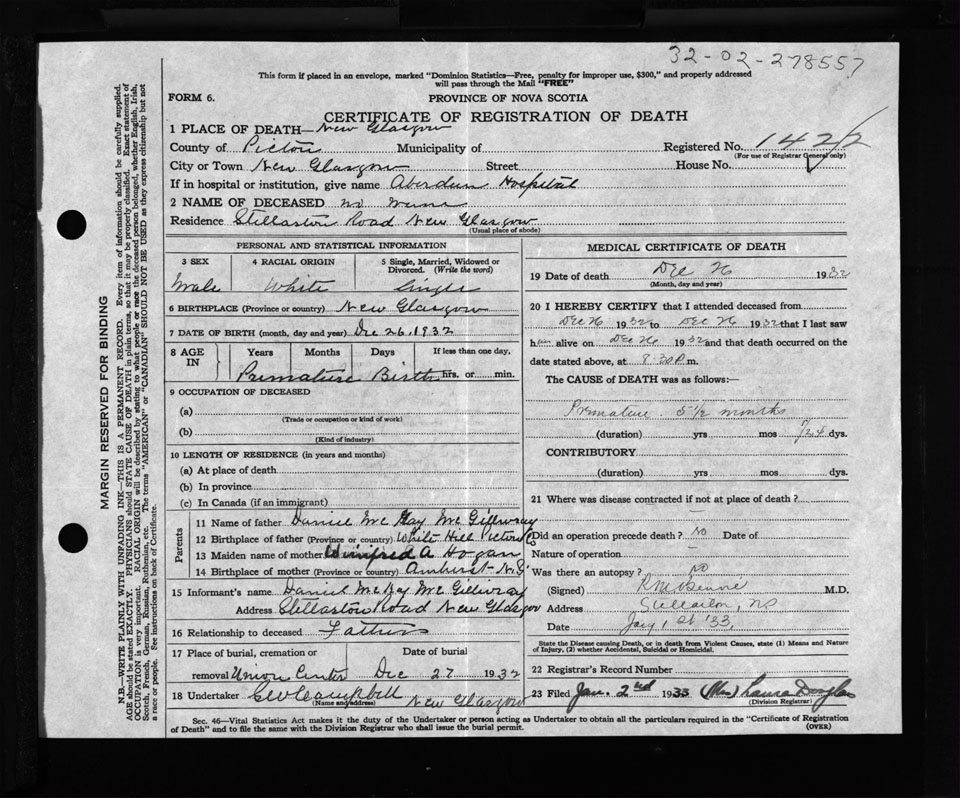 32-02-278557
This form if placed in an envelope, marked "Dominion Statistics—Free, penalty for improper use, $300," and properly addressed
will pass through the Mail "FREE"
FORM 6.
PROVINCE OF NOVA SCOTIA
CERTIFICATE OF REGISTRATION OF DEATH
1 PLACE OF DEATH— New Glasgow
County of Pictou Municipality of Registered No. 1422
(For use of Registrar General only)
City or Town New Glasgow Street House No.
If in hospital or institution, give name Aberdeen Hospital
2 NAME OF DECEASED no name
Residence Stellarton Road New Glasgow
(Usual place of abode)
PERSONAL AND STATISTICAL INFORMATION
3 SEX 4 RACIAL ORIGIN 5 Single, Married, Widowed or Divorced. (Write the word)
Male White Single
6 BIRTHPLACE (Province or country) New Glasgow
7 DATE OF BIRTH (month, day and year) Dec 26, 1932
8 AGE IN Years Months Days If less than one day,
Premature Birth hrs. or min.
9 OCCUPATION OF DECEASED
(a)
(Trade or occupation or kind of work)
(b)
(Kind of industry)
10 LENGTH OF RESIDENCE (in years and months)
(a) At place of death
(b) In province
(c) In Canada (if an immigrant)
Parents
11 Name of father Daniel McKay McGillivray
12 Birthplace of father (Province or country) White Hill Pictou Co
13 Maiden name of mother Winifred A Hogan
14 Birthplace of mother (Province or country) Amherst N.S.
15 Informant's name Daniel McKay McGillivray
Address Stellarton Road New Glasgow
16 Relationship to deceased Father
17 Place of burial, cremation or Date of burial
removal Union Center Dec 27 1932
18 Undertaker Geo Campbell New Glasgow
(Name and address)
MEDICAL CERTIFICATE OF DEATH
19 Date of death Dec 26 1932
(Month, day and year)
20 I HEREBY CERTIFY that I attended deceased from
Dec 26 1932 to Dec 26 1932 that I last saw
him alive on Dec 26 1932 and that death occurred on the
date stated above, at 8.30 P.m.
The CAUSE of DEATH was as follows:—
Premature. 5 1/2 months
(duration) yrs mos 1/24 dys.
CONTRIBUTORY
(duration) yrs mos dys.
21 Where was disease contracted if not at place of death?
Did an operation precede death? no Date of
Nature of operation
Was there an autopsy? no
(Signed) M.D.
Address Stellarton, NS
Date Jany 1st '33
State the Disease causing Death, or in death from Violent Causes, state (1) Means and Nature
of Injury, (2) whether Accidental, Suicidal or Homicidal.
22 Registrar's Record Number
23 Filed Jan. 2nd 1933 (Mrs) Laura Douglas
(Division Registrar)
Sec. 46—Vital Statistics Act makes it the duty of the Undertaker or person acting as Undertaker to obtain all the particulars required in the "Certificate of Registration
of Death" and to file the same with the Division Registrar who shall issue the burial permit. (OVER)
MARGIN RESERVED FOR BINDING
N.B.—WRITE PLAINLY WITH UNFADING INK—THIS IS A PERMANENT RECORD. Every item of information should be carefully supplied.
AGE should be stated EXACTLY. PHYSICIANS should STATE CAUSE OF DEATH in plain terms, so that it may be properly classified. Exact statement of
OCCUPATION is very important. RACIAL ORIGIN will be described by stating to what people or race the deceased person belonged, whether English, Irish,
Scotch, French, German, Russian, Ruthenian, etc. The terms "AMERICAN" or "CANADIAN" SHOULD NOT BE USED as they express citizenship but not
a race or people. See instructions on back of Certificate.